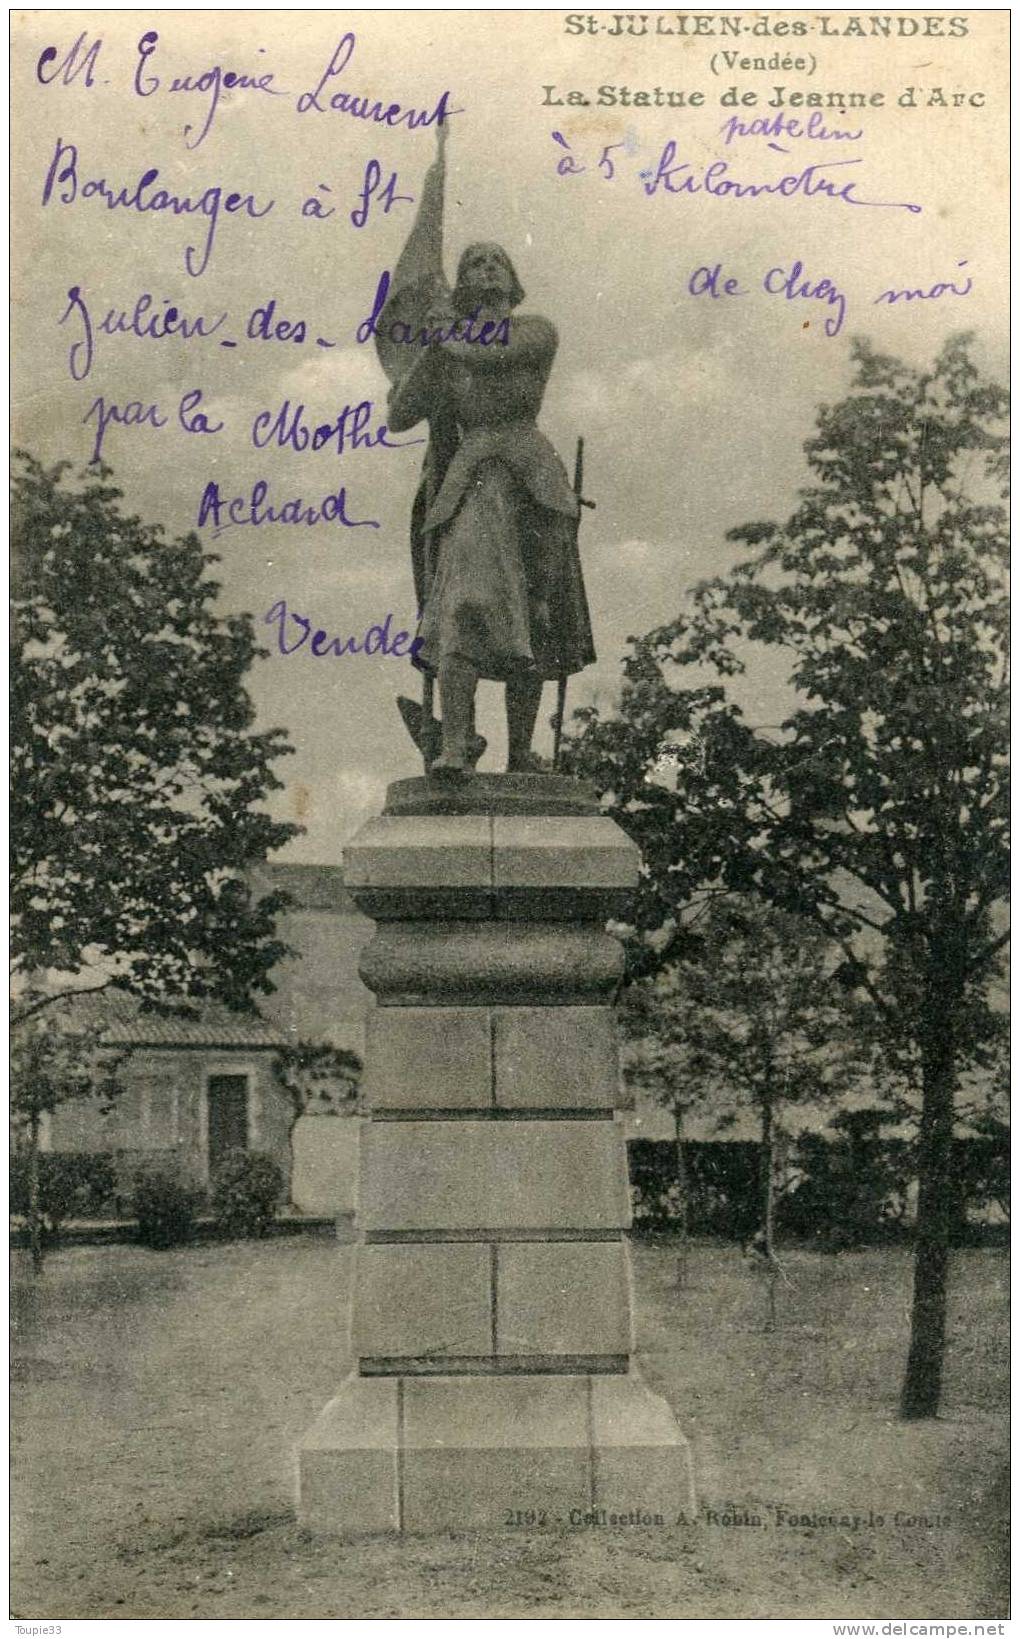 St-JULIEN-des-LANDES
(Vendée)
La Statue de Jeanne d'Arc
M. Eugène Laurent
Boulanger à St
Julien-des-Landes
par la Mothe
Achard
Vendée
patelin
à 5 Kilomètre
de chez moi
2192 - Collection A. Robin, Fontenay-le Comte
Toupie33
www.delcampe.net